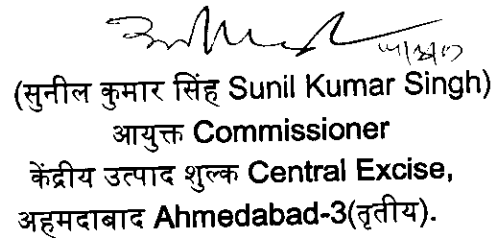 (सुनील कुमार सिंह Sunil Kumar Singh)
आयुक्त Commissioner
केंद्रीय उत्पाद शुल्क Central Excise,
अहमदाबाद Ahmedabad-3(तृतीय).